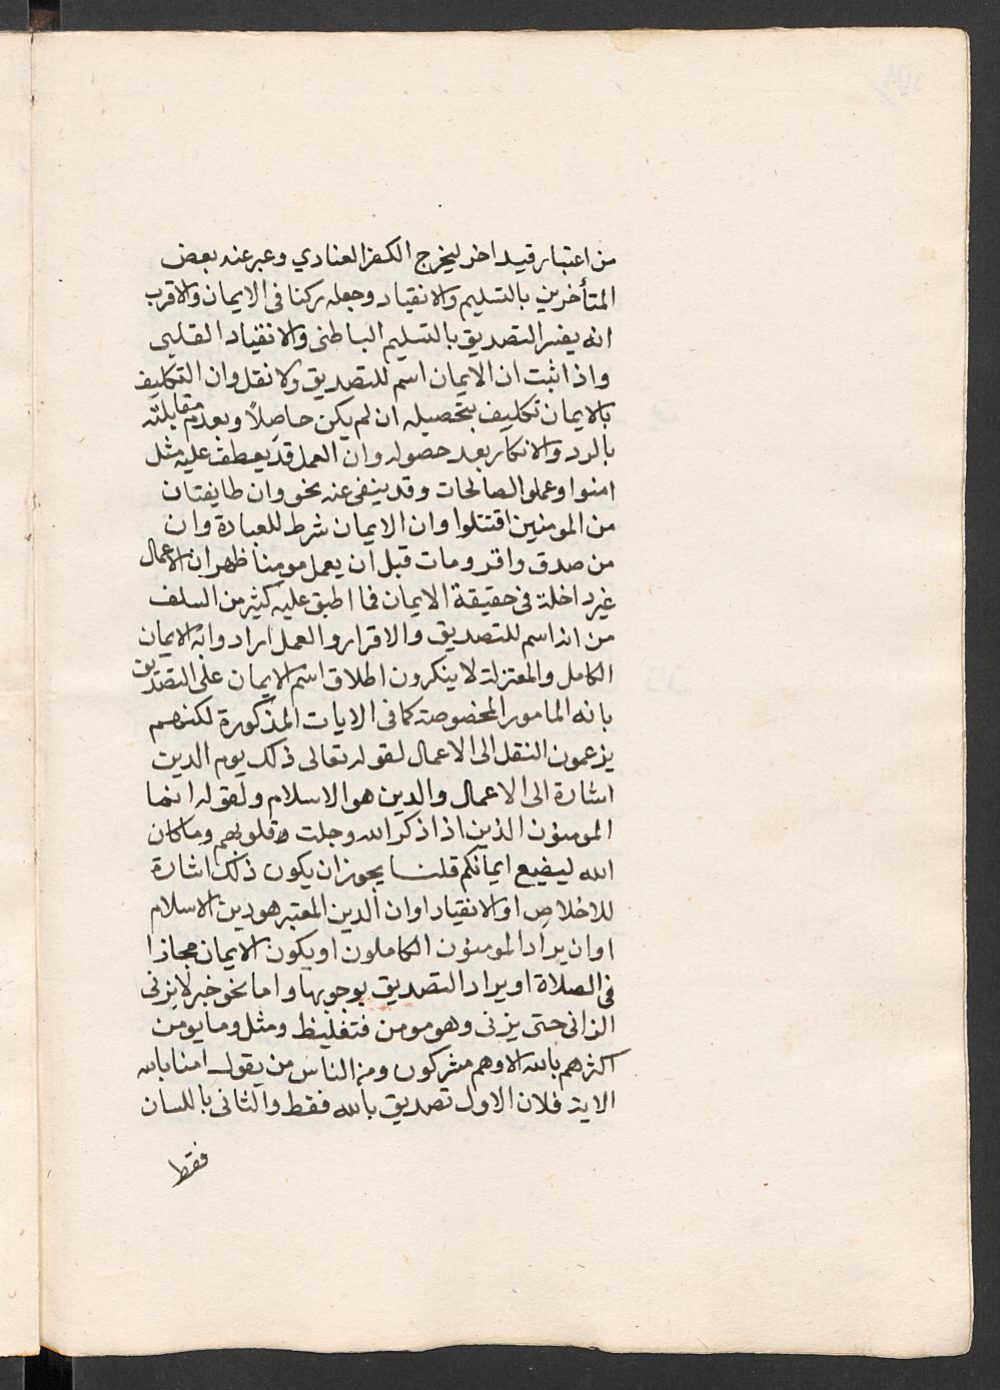 من اعتبار قيد اخر ليخرج الكفر العنادي وعبر عنه بعض
المتأخرين بالتسليم والانقياد وجعله ركنا في الايمان والاقرب
انه يفسر التصديق بالتسليم الباطنى والانقياد القلبى
واذا ثبت ان الايمان اسم للتصديق ولا نقل وان التكليف
بالايمان تكليف بتحصيله ان لم يكن حاصلاً وبعدم مقابلته
بالرد والانكار بعد حصوله وان العمل قد يعطف عليه مثل
امنوا وعملو الصالحات وقد ينفى عنه نحو وان طايفتان
من المومنين اقتتلوا وان الايمان شرط للعبادة وان
من صدق واقر ومات قبل ان يعمل مومنا ظهر ان الاعمال
غير داخلة فى حقيقة الايمان فما اطبق عليه كثير من السلف
من انه اسم للتصديق والاقرار والعمل ارادوا به الايمان
الكامل والمعتزلة لا ينكرون اطلاق اسم الايمان على التصديق
بانه المامور المخصوصة كما فى الايات المذكورة لكنهم
يزعمون النقل الى الاعمال لقوله تعالى ذلك يوم الدين
اشارة الى الاعمال والدين هو الاسلام ولقوله انما
المومنون الذين اذا ذكر الله وجلت قلوبهم وما كان
الله ليضيع ايمانكم قلنا يجوز ان يكون ذلك اشارة
للاخلاص او الانقياد او ان الدين المعتبر هو دين الاسلام
او ان يراد المومنون الكاملون او يكون الايمان مجازا
فى الصلاة او يراد التصديق بوجوبها واما نحو خبر لا يزنى
الزانى حتى يزنى وهو مومن فتغليظ ومثل وما يومن
اكثرهم بالله الا وهم مشركون ومن الناس من يقول امنا بالله
الاية فلان الاول تصديق بالله فقط والثانى باللسان
فقط